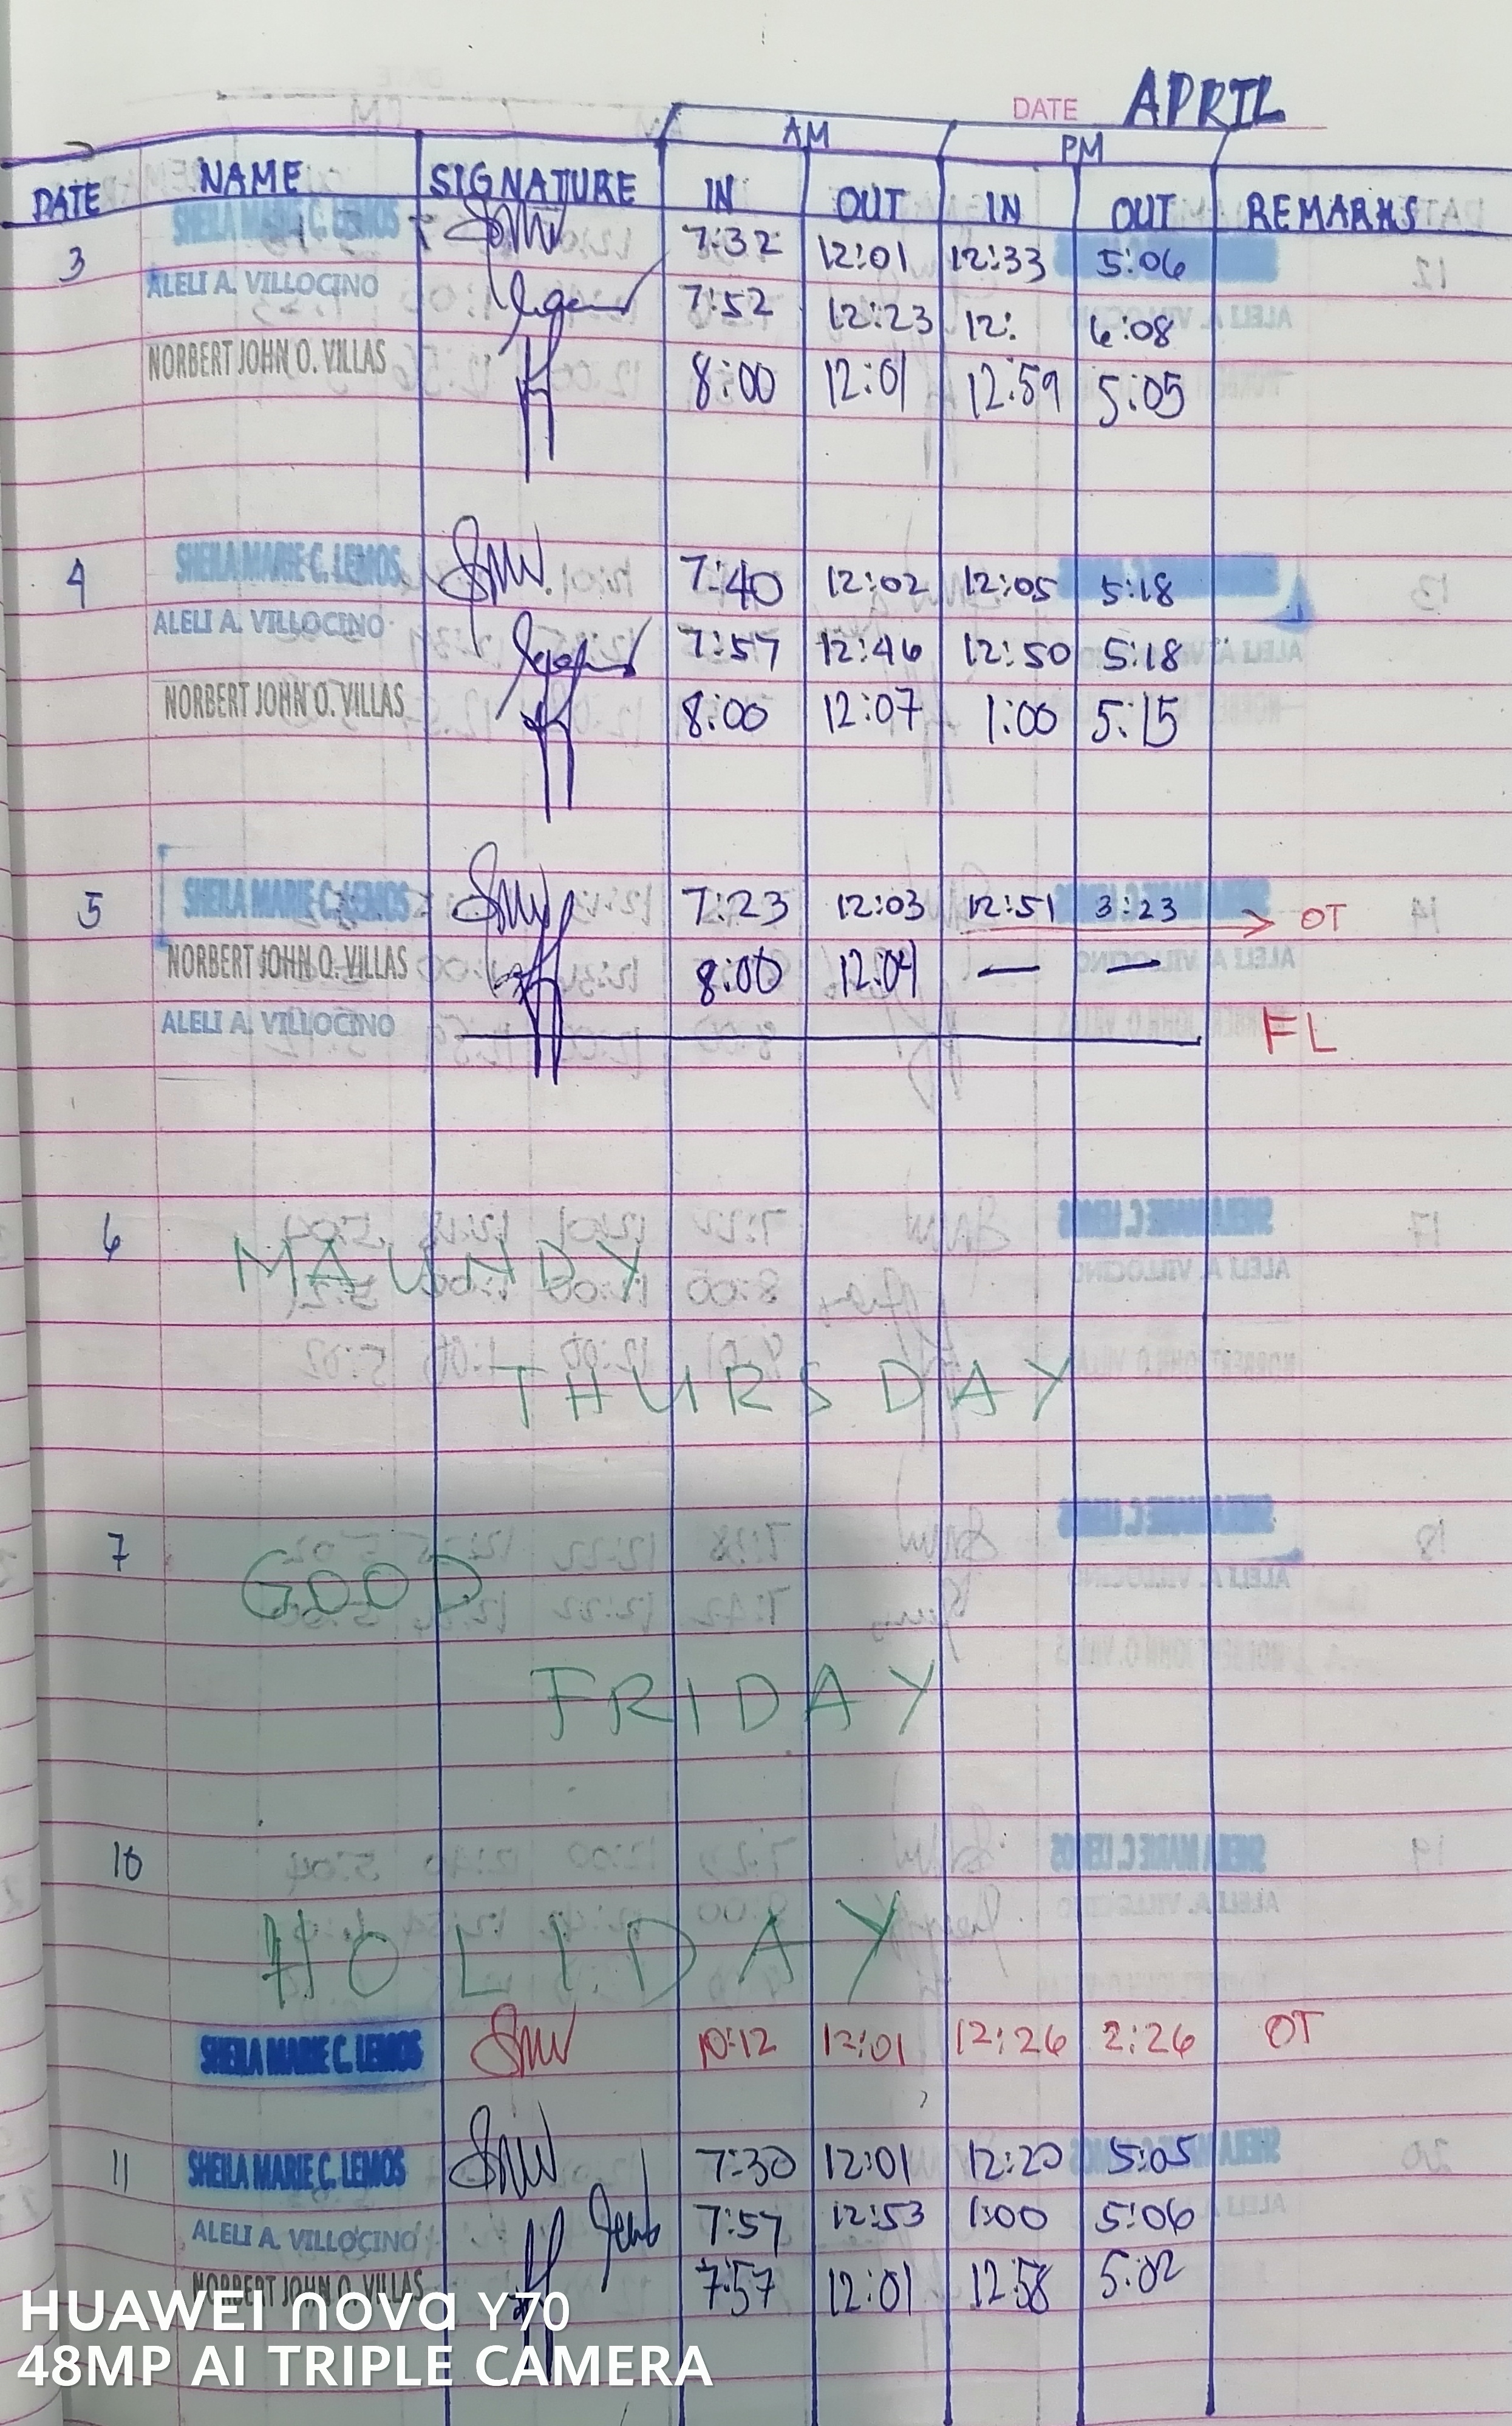 DATE APRIL
AM PM
DATE NAME SIGNATURE IN OUT IN OUT REMARKS
3 SHEILA MARIE C. LEMOS 7:32 12:01 12:33 5:06
ALELI A. VILLOCINO 7:52 12:23 12: 6:08
NORBERT JOHN O. VILLAS 8:00 12:01 12:59 5:05
4 SHEILA MARIE C. LEMOS 7:40 12:02 12:05 5:18
ALELI A. VILLOCINO 7:57 12:46 12:50 5:18
NORBERT JOHN O. VILLAS 8:00 12:07 1:00 5:15
5 SHEILA MARIE C. LEMOS 7:23 12:03 12:51 3:23 OT
NORBERT JOHN O. VILLAS 8:00 12:04 — —
ALELI A. VILLOCINO FL
6 MAUNDY
THURSDAY
7 GOOD
FRIDAY
10
HOLIDAY
SHEILA MARIE C. LEMOS 10:12 12:01 12:26 2:26 OT
11 SHEILA MARIE C. LEMOS 7:30 12:01 12:20 5:05
ALELI A. VILLOCINO 7:57 12:53 1:00 5:06
NORBERT JOHN O. VILLAS 7:57 12:01 12:58 5:02
HUAWEI nova Y70
48MP AI TRIPLE CAMERA